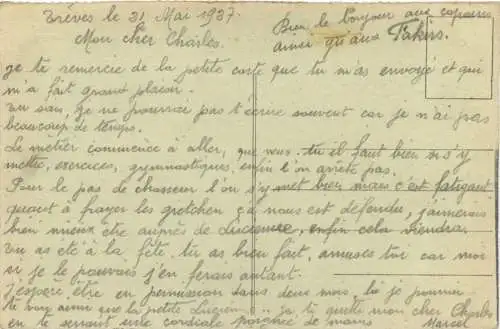 Trèves le 31 Mai 1937.
Mon cher Charles.
Bien le bonjour aux copains
ainsi qu'aux Fakirs.
je te remercie de la petite carte que tu m'as envoyé et qui
m'a fait grand plaisir.
Tu sais, je ne pourrai pas t'écrire souvent car je n'ai pas
beaucoup de temps.
Le métier commence à aller, que veus-tu il faut bien s'y
mettre, exercices, gymnastiques, enfin l'on arrête pas.
Pour le pas de chasseur l'on s'y met bien mais c'est fatigant
quant à frayer les gretchen ça nous est défendu, j'aimerais
bien mieux être auprès de Lucienne, enfin cela viendra.
Tu as été à la fête, tu as bien fait, amuses toi car moi
si je le pouvais j'en ferais autant.
j'espère être en permission dans deux mois, là je pourrai
te voir ainsi que la petite Lucienne. je te quitte mon cher Charles
en te serrant une cordiale poignée de mains. Marcel